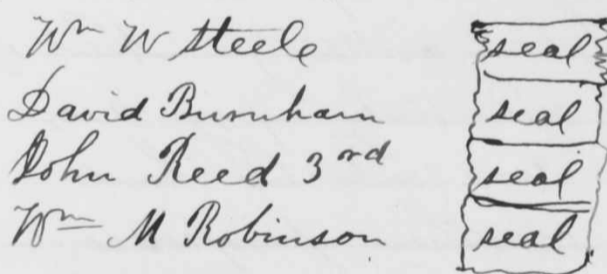 Wm W Steele seal
David Burnham seal
John Reed 3rd seal
Wm M Robinson seal